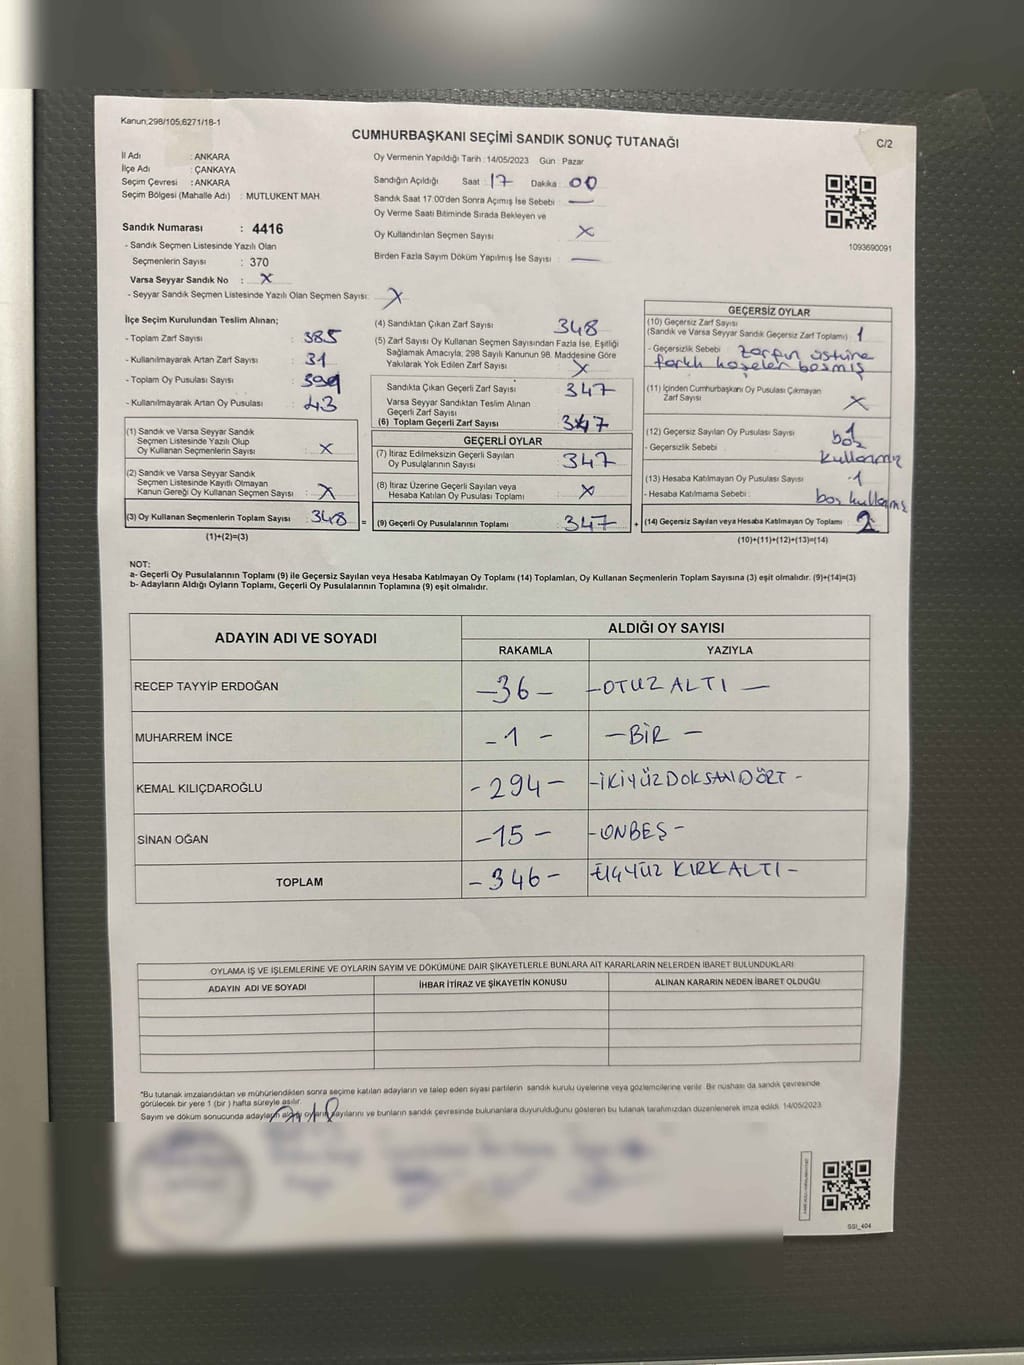 Kanun,298/105,6271/18-1
CUMHURBAŞKANI SEÇİMİ SANDIK SONUÇ TUTANAĞI
C/2
İl Adı : ANKARA
İlçe Adı : ÇANKAYA
Seçim Çevresi : ANKARA
Seçim Bölgesi (Mahalle Adı) : MUTLUKENT MAH.
Sandık Numarası : 4416
- Sandık Seçmen Listesinde Yazılı Olan
Seçmenlerin Sayısı : 370
Varsa Seyyar Sandık No : X
- Seyyar Sandık Seçmen Listesinde Yazılı Olan Seçmen Sayısı: X
Oy Vermenin Yapıldığı Tarih : 14/05/2023 Gün : Pazar
Sandığın Açıldığı Saat : 17 Dakika : 00
Sandık Saat 17.00'den Sonra Açımış İse Sebebi : —
Oy Verme Saati Bitiminde Sırada Bekleyen ve
Oy Kullandırılan Seçmen Sayısı : X
Birden Fazla Sayım Döküm Yapılmış İse Sayısı : —
1093690091
İlçe Seçim Kurulundan Teslim Alınan;
- Toplam Zarf Sayısı : 385
- Kullanılmayarak Artan Zarf Sayısı : 31
- Toplam Oy Pusulası Sayısı :
- Kullanılmayarak Artan Oy Pusulası : 43
(1) Sandık ve Varsa Seyyar Sandık
Seçmen Listesinde Yazılı Olup
Oy Kullanan Seçmenlerin Sayısı : X
(2) Sandık ve Varsa Seyyar Sandık
Seçmen Listesinde Kayıtlı Olmayan
Kanun Gereği Oy Kullanan Seçmen Sayısı : X
(3) Oy Kullanan Seçmenlerin Toplam Sayısı : 348
(1)+(2)=(3)
(4) Sandıktan Çıkan Zarf Sayısı : 348
(5) Zarf Sayısı Oy Kullanan Seçmen Sayısından Fazla İse, Eşitliği
Sağlamak Amacıyla; 298 Sayılı Kanunun 98. Maddesine Göre
Yakılarak Yok Edilen Zarf Sayısı : X
Sandıkta Çıkan Geçerli Zarf Sayısı : 347
Varsa Seyyar Sandıktan Teslim Alınan
Geçerli Zarf Sayısı :
(6) Toplam Geçerli Zarf Sayısı : 347
GEÇERLİ OYLAR
(7) İtiraz Edilmeksizin Geçerli Sayılan
Oy Pusulalarının Sayısı : 347
(8) İtiraz Üzerine Geçerli Sayılan veya
Hesaba Katılan Oy Pusulası Toplamı : X
= (9) Geçerli Oy Pusulalarının Toplamı : 347 +
GEÇERSİZ OYLAR
(10) Geçersiz Zarf Sayısı
(Sandık ve Varsa Seyyar Sandık Geçersiz Zarf Toplamı) : 1
- Geçersizlik Sebebi : zarfın üstüne
farklı kaşeler basmış
(11) İçinden Cumhurbaşkanı Oy Pusulası Çıkmayan
Zarf Sayısı : X
(12) Geçersiz Sayılan Oy Pusulası Sayısı : 1
- Geçersizlik Sebebi : boş
kullanmış
(13) Hesaba Katılmayan Oy Pusulası Sayısı : 1
- Hesaba Katılmama Sebebi : boş kullanmış
(14) Geçersiz Sayılan veya Hesaba Katılmayan Oy Toplamı : 2
(10)+(11)+(12)+(13)=(14)
NOT:
a- Geçerli Oy Pusulalarının Toplamı (9) ile Geçersiz Sayılan veya Hesaba Katılmayan Oy Toplamı (14) Toplamları, Oy Kullanan Seçmenlerin Toplam Sayısına (3) eşit olmalıdır. (9)+(14)=(3)
b- Adayların Aldığı Oyların Toplamı, Geçerli Oy Pusulalarının Toplamına (9) eşit olmalıdır.
ADAYIN ADI VE SOYADI ALDIĞI OY SAYISI
RAKAMLA YAZIYLA
RECEP TAYYİP ERDOĞAN -36- -OTUZ ALTI-
MUHARREM İNCE -1- -BİR-
KEMAL KILIÇDAROĞLU -294- -İKİYÜZDOKSANDÖRT-
SİNAN OĞAN -15- -ONBEŞ-
TOPLAM -346- -ÜÇYÜZ KIRKALTI-
OYLAMA İŞ VE İŞLEMLERİNE VE OYLARIN SAYIM VE DÖKÜMÜNE DAİR ŞİKAYETLERLE BUNLARA AİT KARARLARIN NELERDEN İBARET BULUNDUKLARI
ADAYIN ADI VE SOYADI İHBAR İTİRAZ VE ŞİKAYETİN KONUSU ALINAN KARARIN NEDEN İBARET OLDUĞU
*Bu tutanak imzalandıktan ve mühürlendikten sonra seçime katılan adayların ve talep eden siyasi partilerin sandık kurulu üyelerine veya gözlemcilerine verilir. Bir nüshası da sandık çevresinde
görülecek bir yere 1 (bir ) hafta süreyle asılır.
Sayım ve döküm sonucunda adayların aldığı oyların sayılarını ve bunların sandık çevresinde bulunanlara duyurulduğunu gösteren bu tutanak tarafımızdan düzenlenerek imza edildi. 14/05/2023
SSI_404